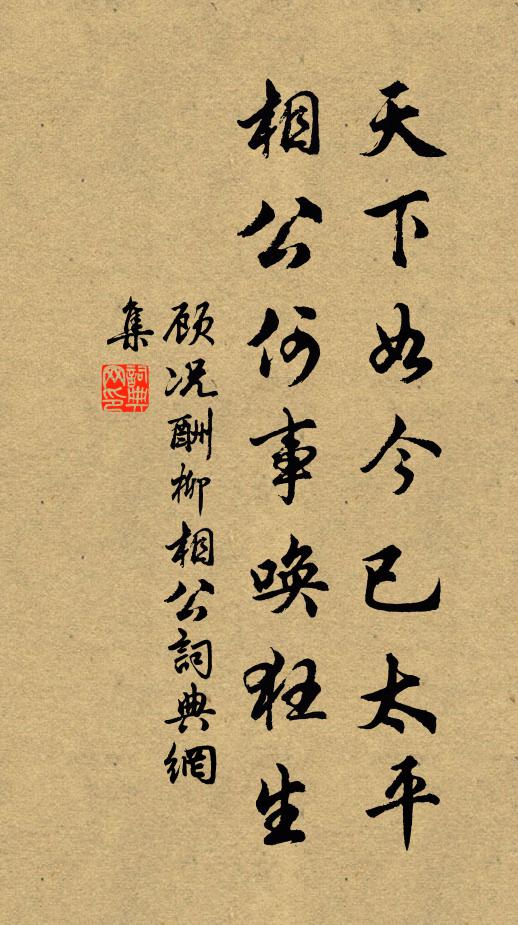 天下如今已太平
相公何事唤狂生
顾况酬柳相公詞典網
集
詞典网印